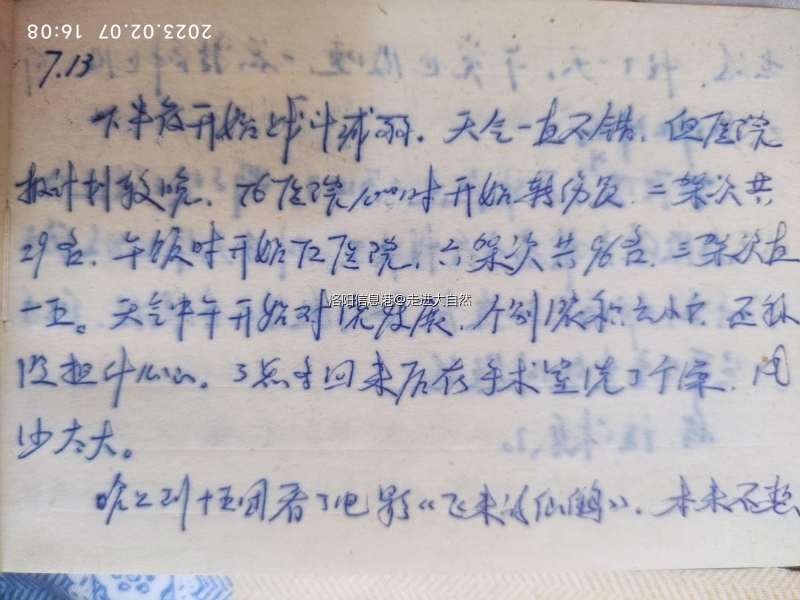 2023.02.07 16:08
7.13
下半夜开始战斗减弱. 天气一直不错. 但医院
报计划较晚. 76医院10时开始转伤员. 二架次共
29名. 午饭时开始72医院. 六架次共96名. 三架次直
一五。天气中午开始对流发展. 个别浓积云小, 还
没担什么心. 3点才回来后在手术室洗了个澡. 用
沙太大。
晚上到十五团看了电影《飞来的仙鹤》. 本来不想
洛阳信息港@走进大自然